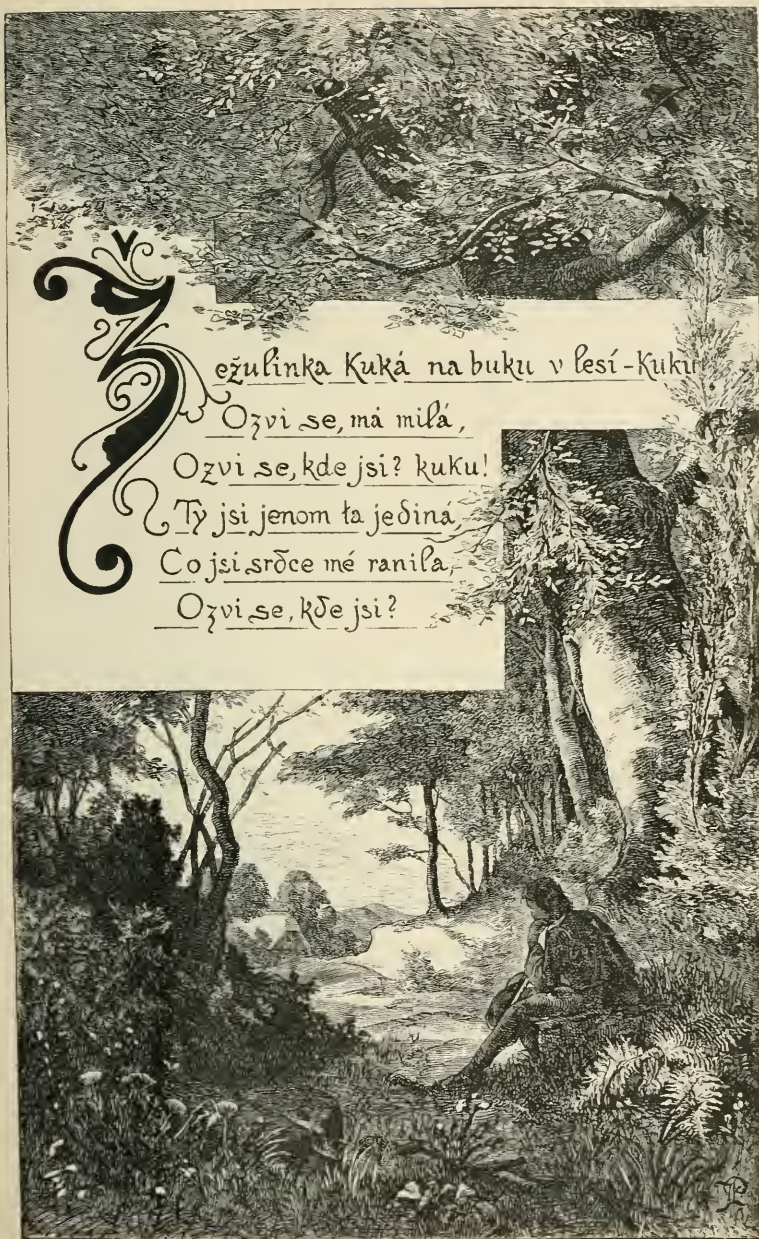 Žežulinka Kuká na buku v lesí-Kuku
Ozvi se, má milá,
Ozvi se, kde jsi? kuku!
Ty jsi jenom ta jediná,
Co jsi srdce mé ranila,
Ozvi se, kde jsi?